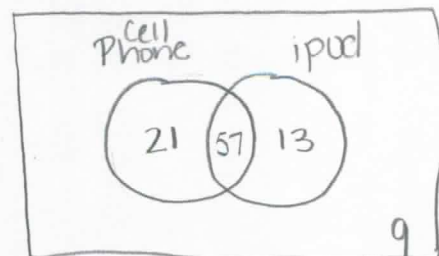 Cell
Phone
ipod
21
57
13
9